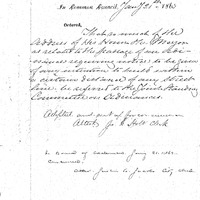 In Common Council, Jan'y 21st 1860
Ordered,
That so much of the
Address of His Honor the Mayor
as relates to the passage of an Ordi-
nance requiring notice to be given
of any intention to build within
a certain distance of any street
line be referred to the Joint Standing
Committee on Ordinances.
Adopted and sent up for concurrence
Attest J. H. Holt Clerk
In Board of Aldermen Jany 30, 1860.
Concurred.
Attest City Clerk